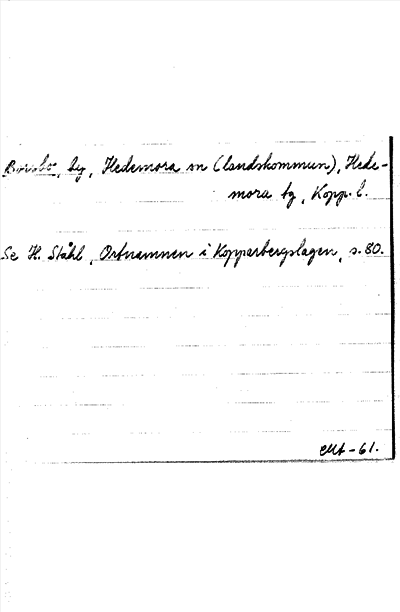 by, Hedemora sn (landskommun), Hede-
mora tg, Kopp. l.
Se H. Ståhl, Ortnamnen i Kopparbergslagen, s. 80.
-61.